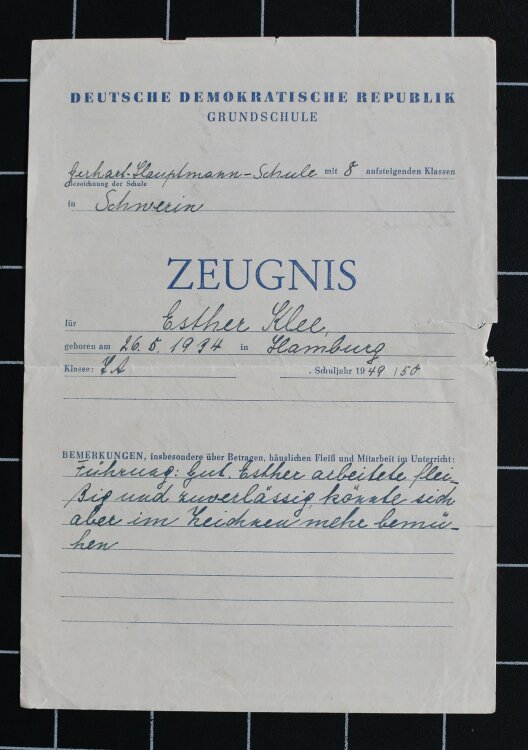 DEUTSCHE DEMOKRATISCHE REPUBLIK
GRUNDSCHULE
Gerhart-Hauptmann-Schule mit 8 aufsteigenden Klassen
Bezeichnung der Schule
in Schwerin
ZEUGNIS
für Esther Klee,
geboren am 26.5.1934 in Hamburg
Klasse: 7A Schuljahr 1949/50
BEMERKUNGEN, insbesondere über Betragen, häuslichen Fleiß und Mitarbeit im Unterricht:
Führung: Gut. Esther arbeitete flei-
ßig und zuverlässig, könnte sich
aber im Zeichnen mehr bemü-
hen